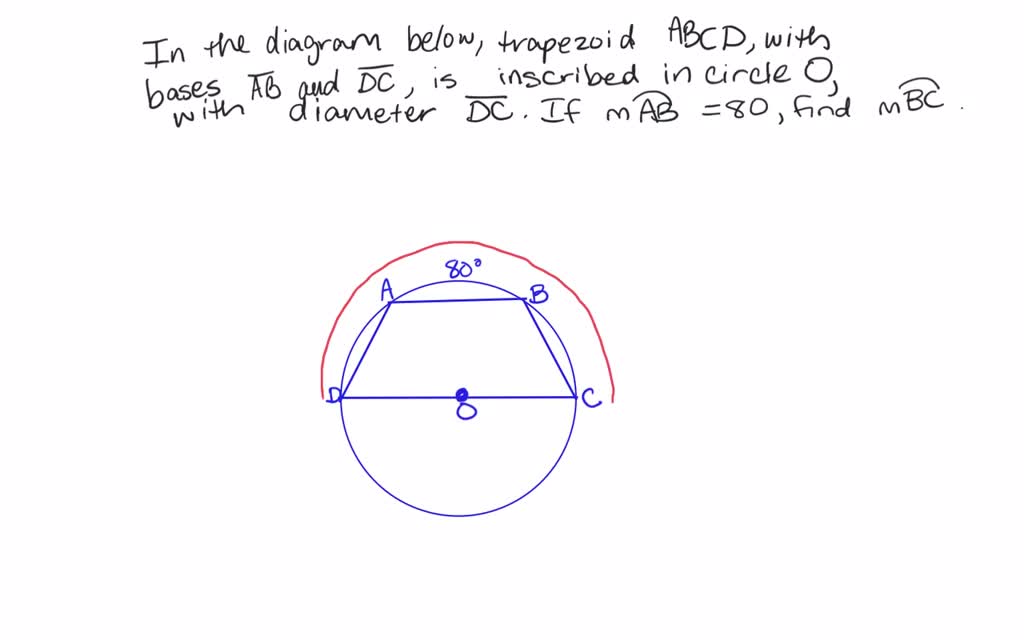 In the diagram below, trapezoid ABCD, with
bases A̅B̅ and D̅C̅, is inscribed in circle O,
with diameter D̅C̅. If m A͡B = 80, find m B͡C.
80°
A
B
D
O
C